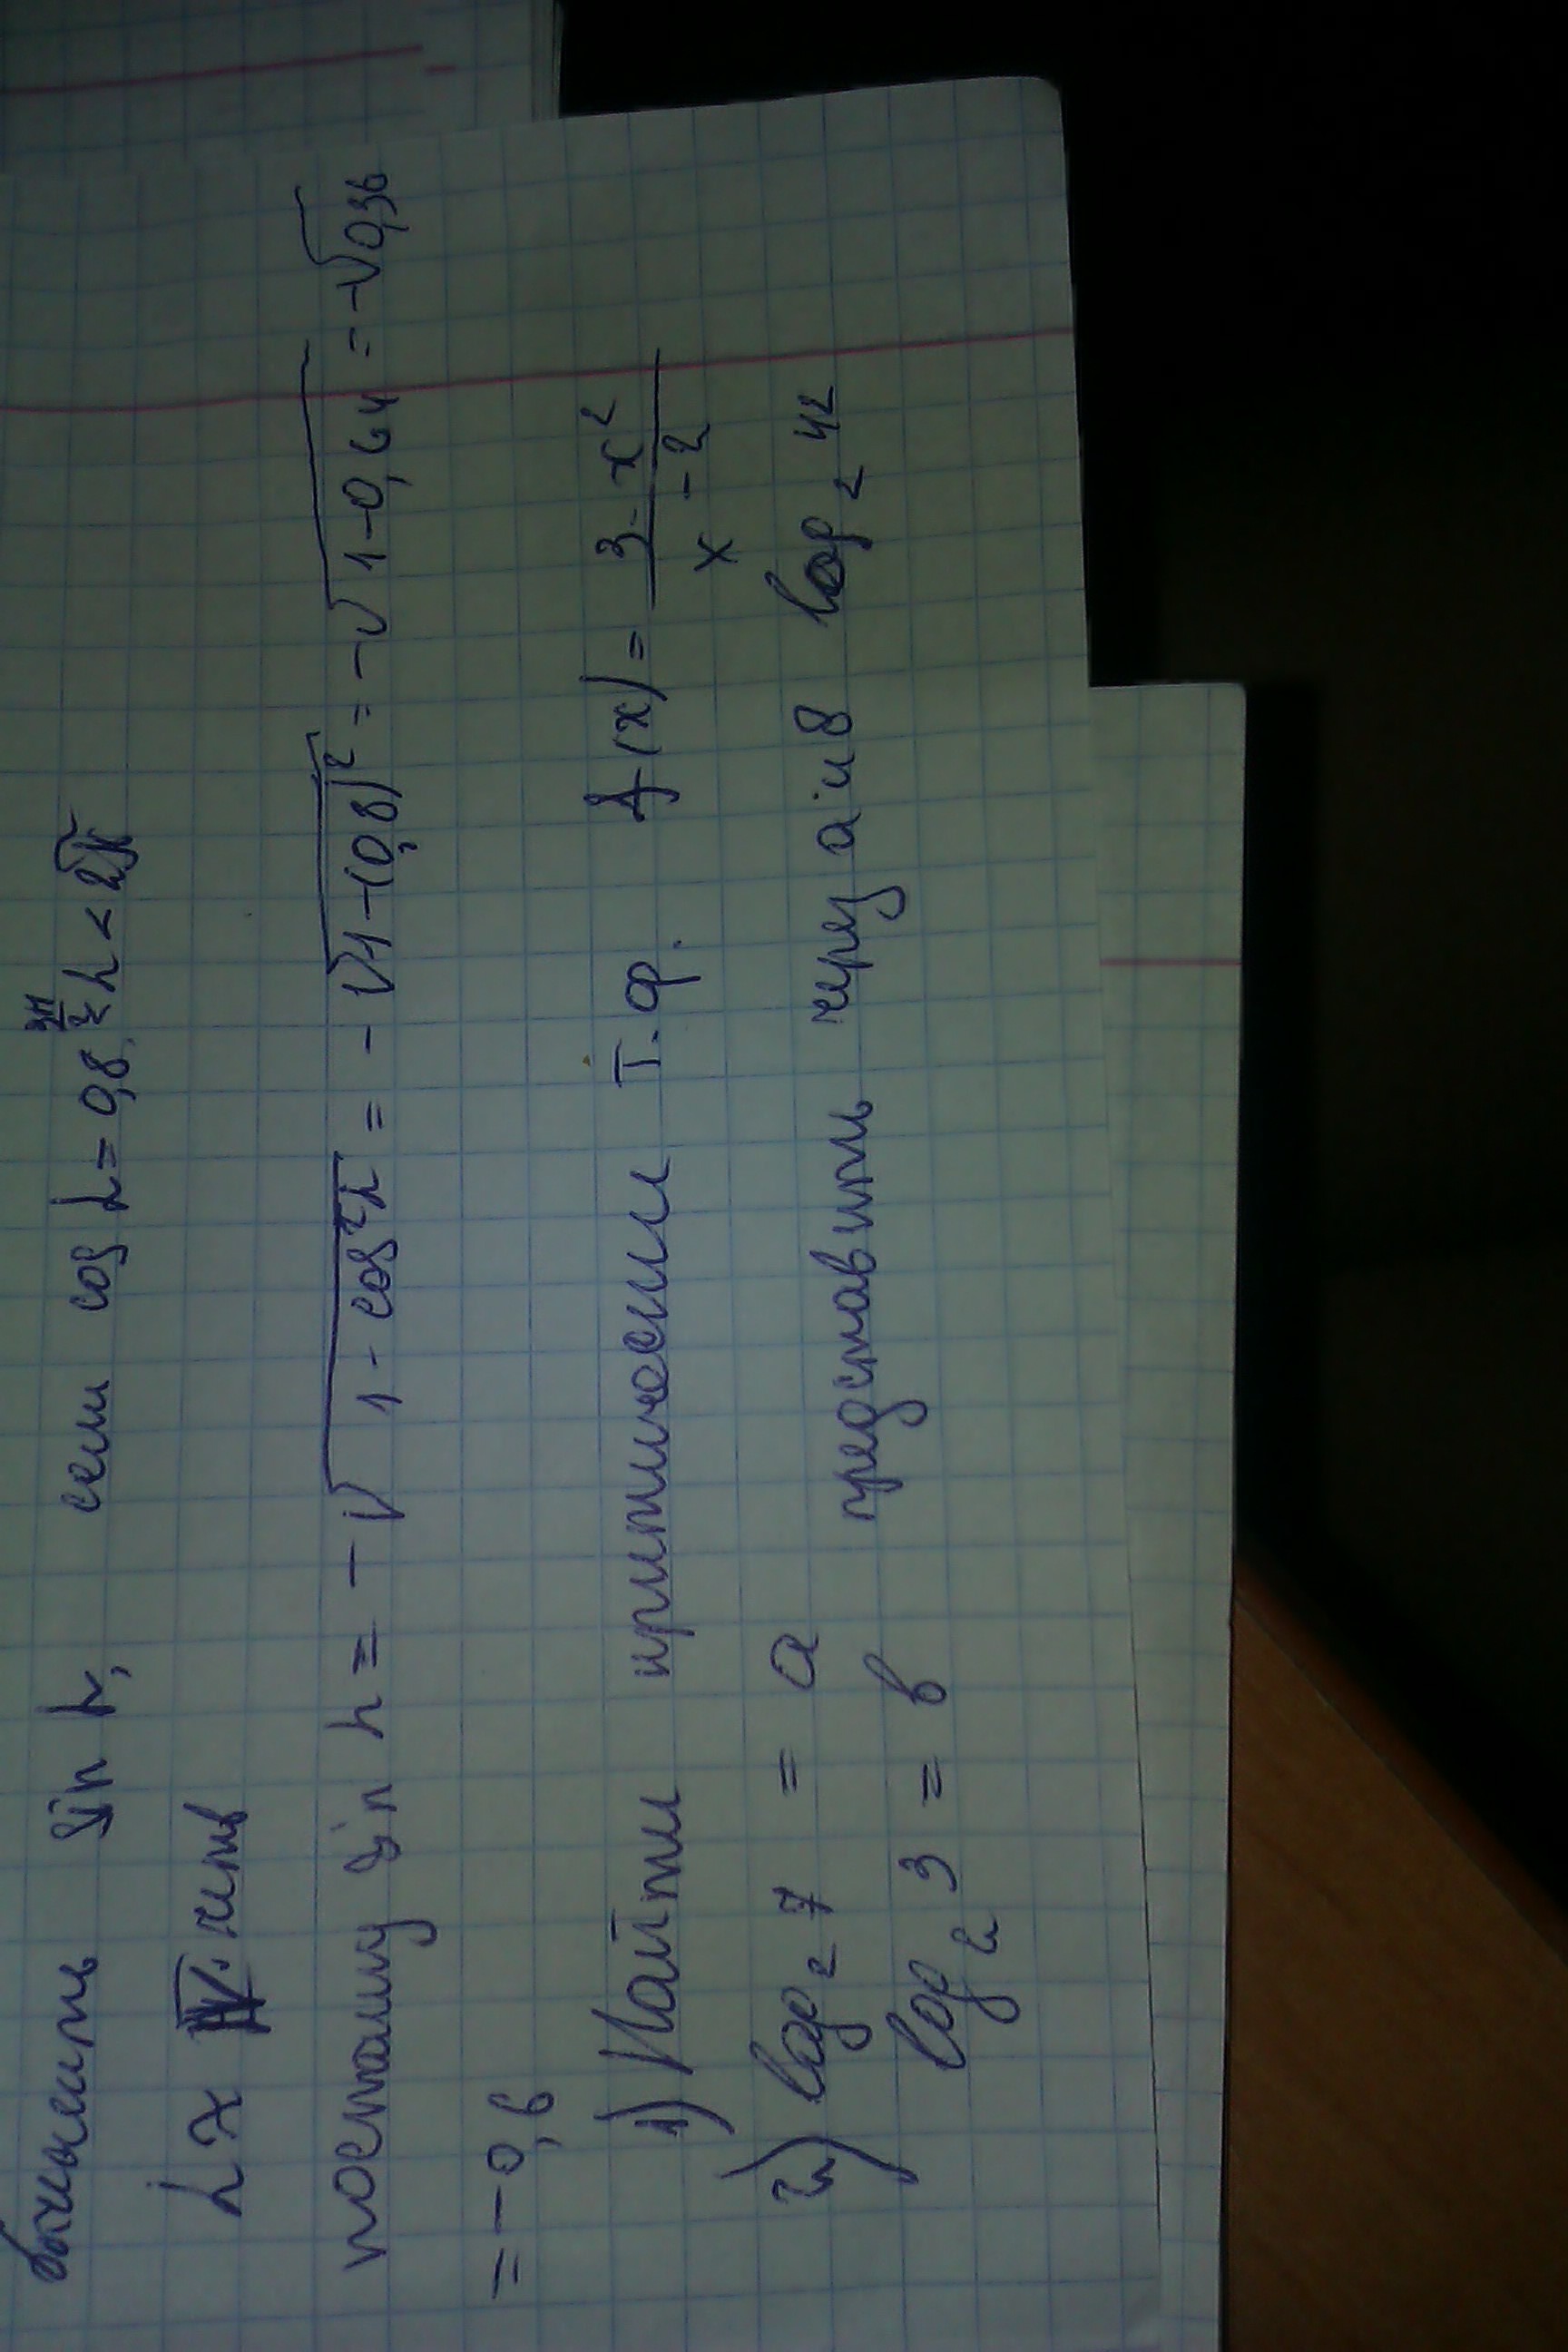 Вычислить sin α, если cos α = 0,8, 3π/2 < α < 2π
α х IV четв
поєтаму sin α = -√(1 - cos²α) = -√(1-(0,8)² = -√(1-0,64) = -√0,36
= -0,6
1) Найти критически т.ф. f(x) = (3-x²)/(x-2)
2) log₂ 7 = a представить через a и в log₂ 42
log₂ 3 = в